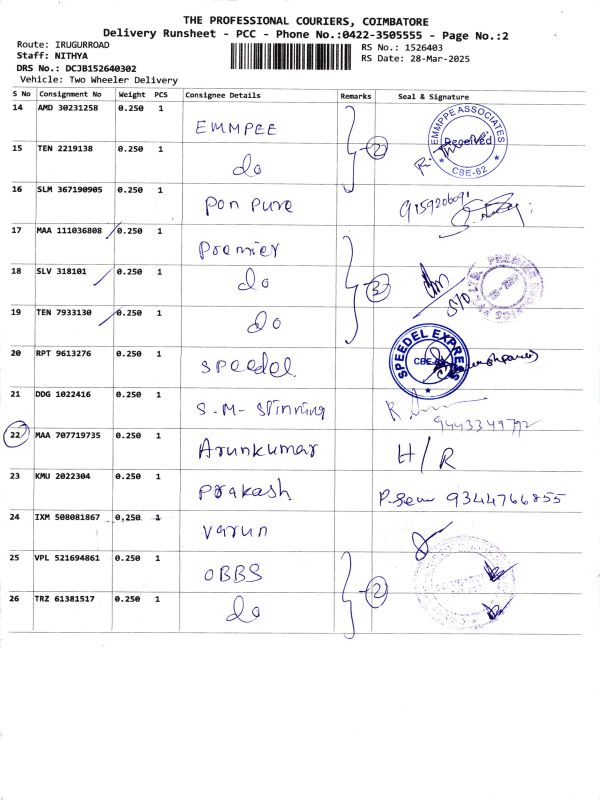 THE PROFESSIONAL COURIERS, COIMBATORE
Delivery Runsheet - PCC - Phone No.:0422-3505555 - Page No.:2
Route: IRUGURROAD
RS No.: 1526403
Staff: NITHYA
RS Date: 28-Mar-2025
DRS No.: DCJB152640302
Vehicle: Two Wheeler Delivery
S No Consignment No Weight PCS Consignee Details Remarks Seal & Signature
14 AMD 30231258 0.250 1 EMMPEE
EMMPPE ASSOCIATES
Received
CBE-62
15 TEN 2219138 0.250 1 do 2
16 SLM 367190905 0.250 1 Pon Pure 9159206091
17 MAA 111036808 0.250 1 Premier
18 SLV 318101 0.250 1 do 3
19 TEN 7933130 0.250 1 do
20 RPT 9613276 0.250 1 Speedel
SPEEDEL EXPRESS
21 DDG 1022416 0.250 1 S.M- Spinning 9443349792
22 MAA 707719735 0.250 1 Arunkumar H/R
23 KMU 2022304 0.250 1 Prakash 9344766855
24 IXM 508081867 0.250 1 Varun
25 VPL 521694861 0.250 1 OBBS 2
26 TRZ 61381517 0.250 1 do